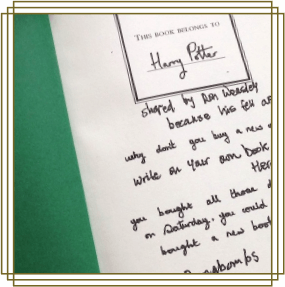 THIS BOOK BELONGS TO
Harry Potter
shared by Ron Weasley
because his fell
why don't you buy a new
Write on your own book
Her
you bought all those
on Saturday, you could
bought a new